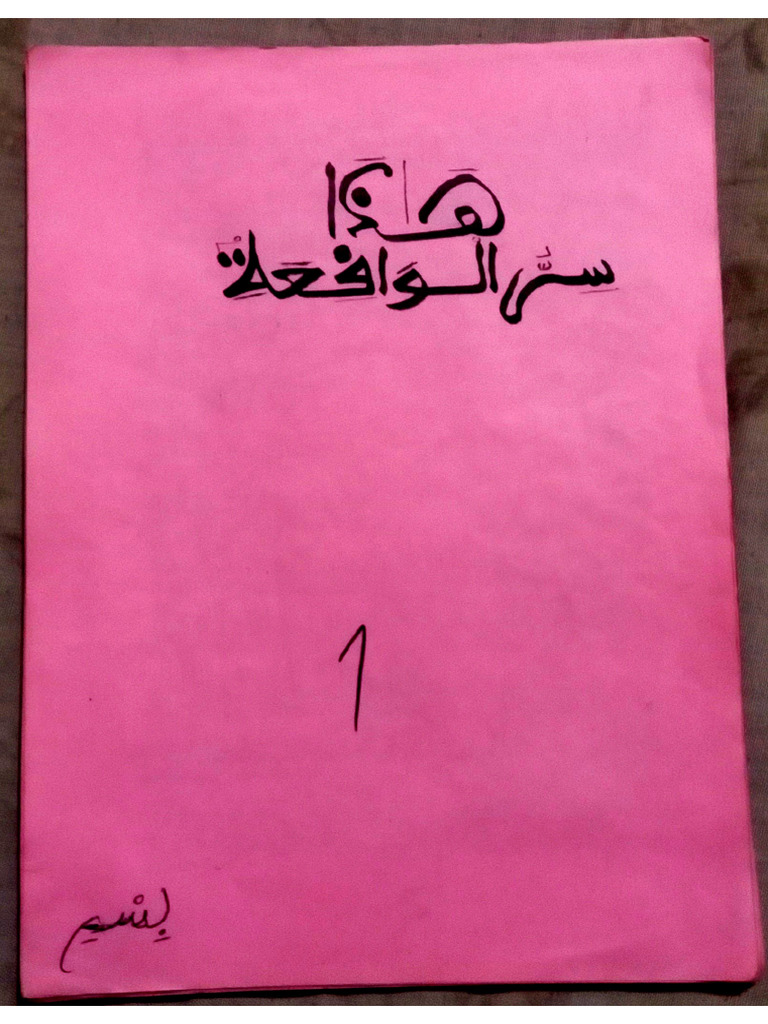 هَذَا
سِرُّ الوَاقِعَةِ
1
بِسْمِ